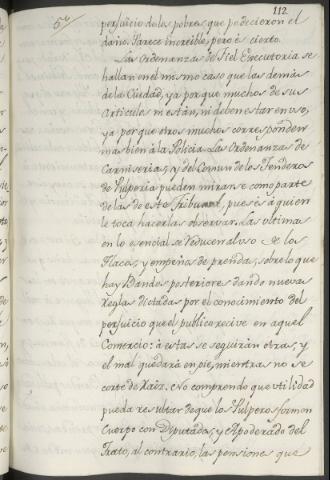 112
perjuicio de los pobres, que padecieron el
daño. Parece increible, pero es cierto.
Las Ordenanzas de Fiel Executoria se
hallan en el mismo caso que las demas
de la Ciudad, ya porque muchos de sus
Articulos ni están, ni deben estar en uso;
ya porque otros muchos corresponden
mas bien à la Policia. Las Ordenanzas de
Carniceria, y del Comun de los Tenderos
de Pulperia pueden mirarse como parte
de las de este Tribunal, pues és à quien
le toca hacerlas observar. Las ultimas
en lo esencial se reducen al uso de los
Tlacos, y empeños de prendas, sobre lo que
hay Bandos posteriores dando nuevas
Reglas dictadas por el conocimiento del
perjuicio que el publico recive en aquel
Comercio: à estas se seguirán otras, y
el mal quedará en pie, mientras no se
corte de raiz. No comprendo que utilidad
pueda resultar de què los Pulperos formen
Cuerpo con Diputados, y Apoderado del
Trato, al contrario, las pensiones que